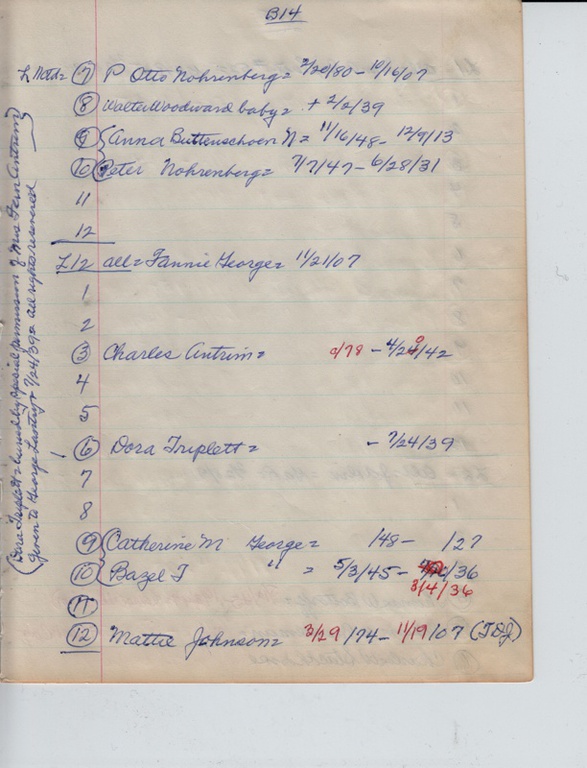 B14
⑦ P Otto Nohrenberg = 2/20/80 - 10/16/07
⑧ Walter Woodward baby = + 2/2/39
⑨ Anna Buttenschoen N = 11/16/48 - 12/9/13
⑩ Peter Nohrenberg = 7/7/47 - 6/28/31
11
12
L12 all = Fannie George = 11/21/07
1
2
③ Charles Antrim = 0/78 - 4/24/42
4
5
⑥ Dora Triplett = - 7/24/39
7
8
⑨ Catherine M George = 148 - 127
⑩ Bazel T " = 5/3/45 - /36
8/4/36
⑪
⑫ Mattie Johnson = 3/29/74 - 11/19/07 (TDJ)
(Dora Triplett = buried by special permission of Mrs Fern Antrim)
given to George 7/24/39 all rights reserved